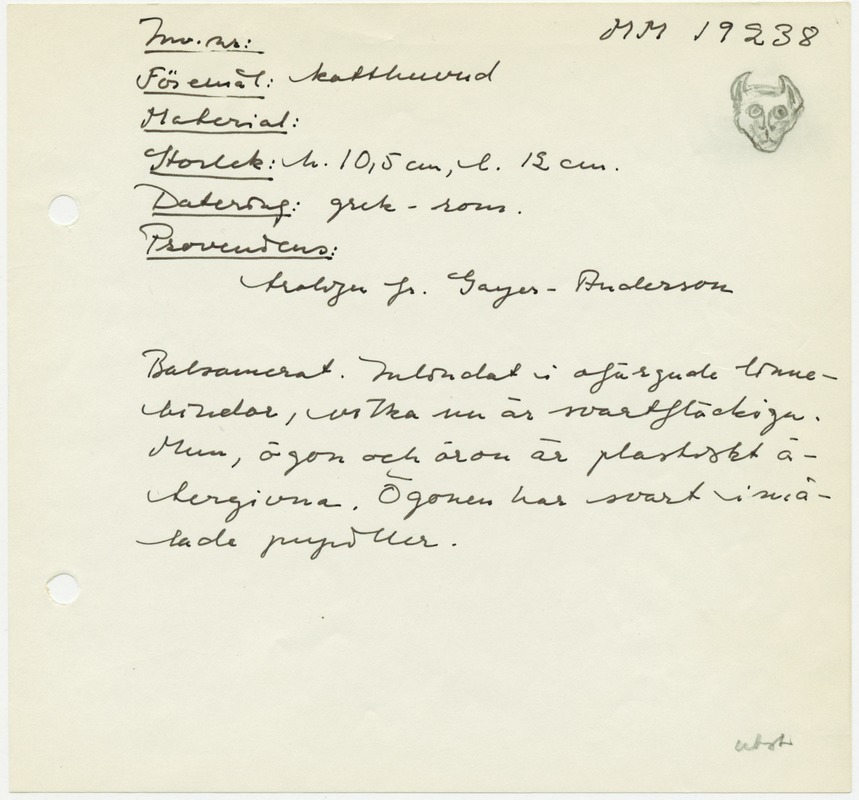 Inv.nr: MM 19238
Föremål: katthuvud
Material:
Storlek: h. 10,5 cm, l. 12 cm.
Datering: grek-rom.
Proveniens:
Gayer-Anderson
Balsamerat. Inlindat i ofärgade linne-
bindor, vilka nu är svartfläckiga.
Mun, ögon och öron är plastiskt å-
tergivna. Ögonen har svart imå-
lade pupiller.